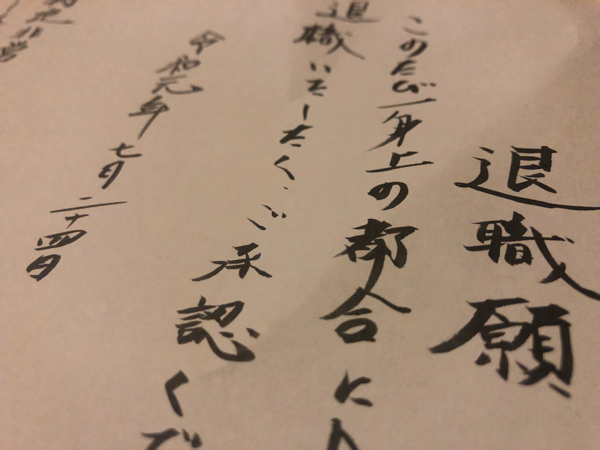 退職願
このたび一身上の都合により
退職いたしたく、ご承認くだ
令和元年 七月二十四日